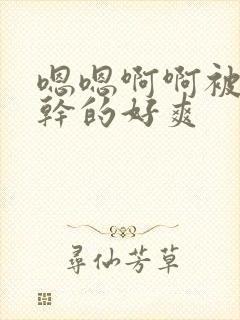 嗯嗯啊啊被
幹的好爽
尋仙芳草